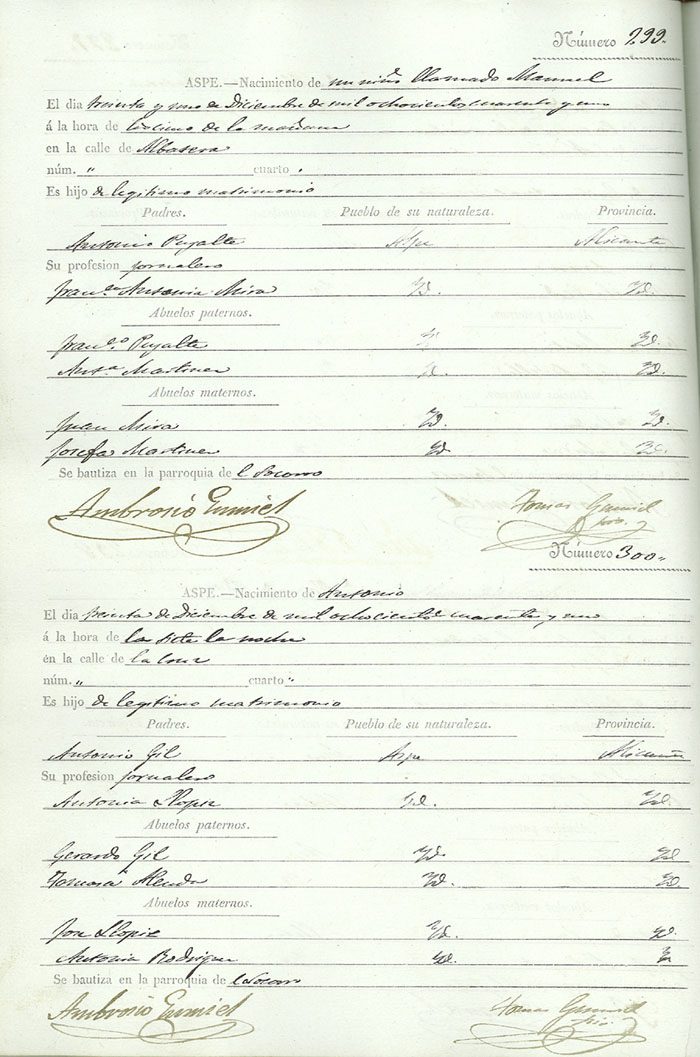 Número 299.
ASPE.—Nacimiento de un niño llamado Manuel
El dia treinta y uno de Diciembre de mil ochocientos cuarenta y uno
á la hora de las cinco de la mañana
en la calle de
núm. " cuarto "
Es hijo de legitimo matrimonio
Padres. Pueblo de su naturaleza. Provincia.
Antonio Pujalte Aspe Alicante
Su profesion jornalero
Fran.ca Antonia Mira Yd. Yd.
Abuelos paternos.
Fran.co Pujalte Yd. Yd.
Ant.a Martinez Yd. Yd.
Abuelos maternos.
Juan Mira Yd. Yd.
Josefa Martinez Yd. Yd.
Se bautiza en la parroquia de l Socorro
Ambrosio Tomas
Número 300.
ASPE.—Nacimiento de Antonio
El dia treinta de Diciembre de mil ochocientos cuarenta y uno
á la hora de las siete la noche
en la calle de la Cruz
núm. " cuarto "
Es hijo de legitimo matrimonio
Padres. Pueblo de su naturaleza. Provincia.
Antonio Gil Aspe Alicante
Su profesion jornalero
Antonia Llopiz Yd. Yd.
Abuelos paternos.
Gerardo Gil Yd. Yd.
Tomasa Yd. Yd.
Abuelos maternos.
Llopiz Yd. Yd.
Antonia Rodriguez Yd. Yd.
Se bautiza en la parroquia de l Socorro
Ambrosio Tomas